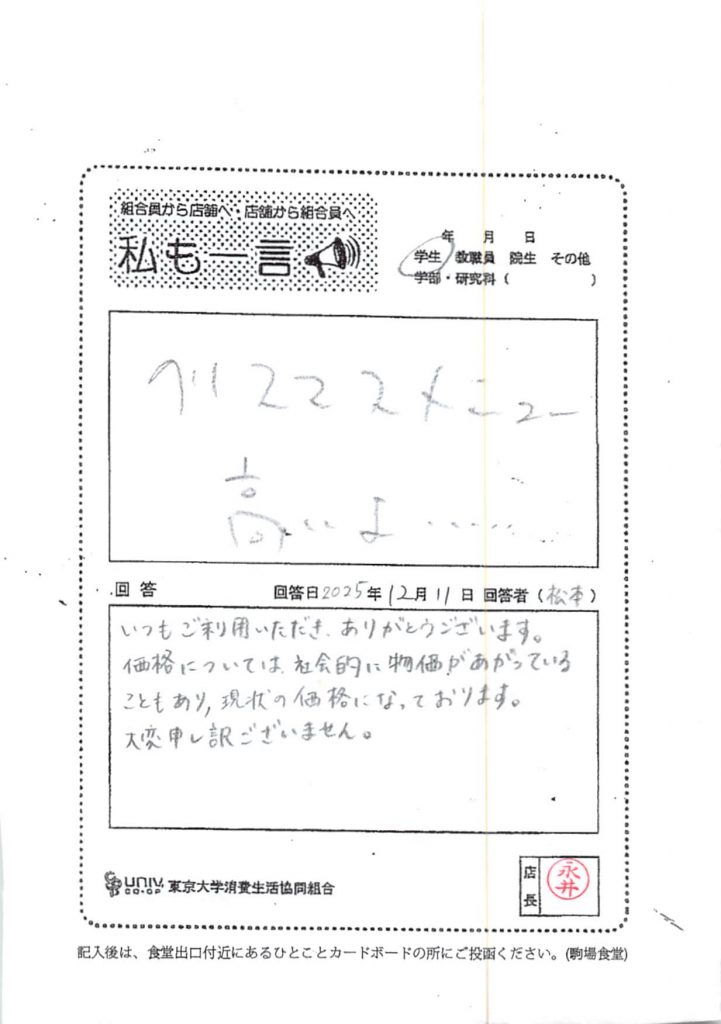 組合員から店舗へ・店舗から組合員へ
私も一言
年 月 日
学生 教職員 院生 その他
学部・研究科 ( )
クリスマスメニュー
高いよ......
回答 回答日 2025年 12月 11日 回答者 (松本)
いつもご利用いただき、ありがとうございます。
価格については、社会的に物価があがっている
こともあり、現状の価格になっております。
大変申し訳ございません。
UNIV. CO-OP 東京大学消費生活協同組合
店長 永井
記入後は、食堂出口付近にあるひとことカードボードの所にご投函ください。(駒場食堂)